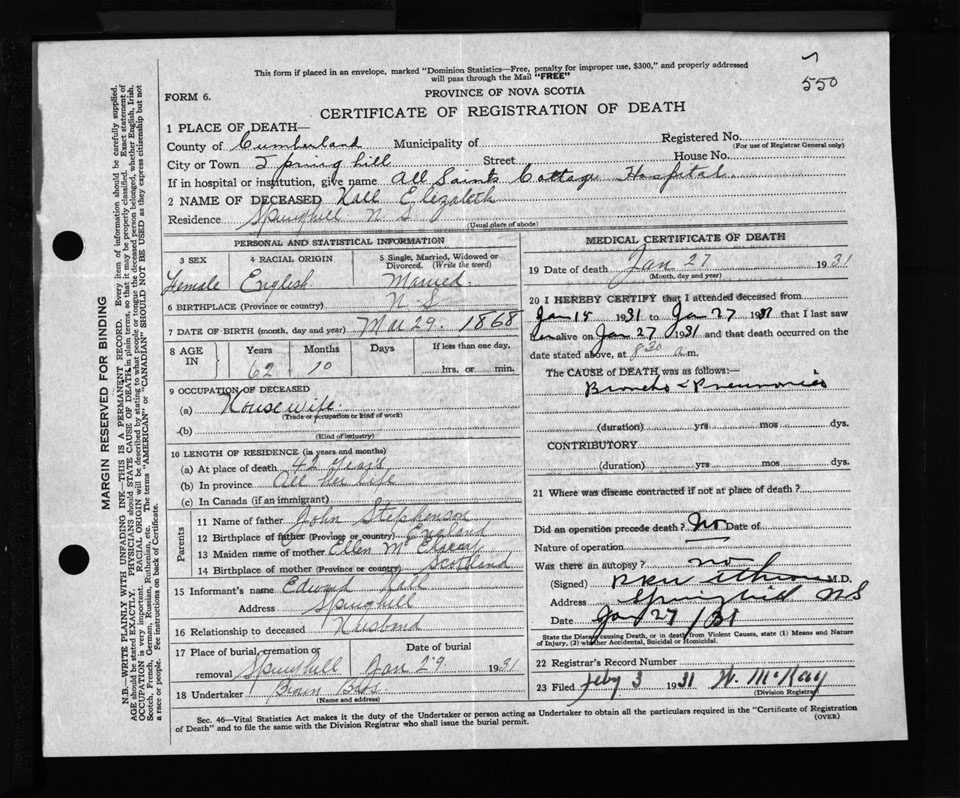 550
This form if placed in an envelope, marked "Dominion Statistics—Free, penalty for improper use, $300," and properly addressed
will pass through the Mail "FREE"
PROVINCE OF NOVA SCOTIA
FORM 6.
CERTIFICATE OF REGISTRATION OF DEATH
1 PLACE OF DEATH—
County of Cumberland Municipality of Registered No.
(For use of Registrar General only)
City or Town Springhill Street House No.
If in hospital or institution, give name All Saints Cottage Hospital
2 NAME OF DECEASED Hall Elizabeth
Residence Springhill N S
(Usual place of abode)
PERSONAL AND STATISTICAL INFORMATION
3 SEX 4 RACIAL ORIGIN 5 Single, Married, Widowed or Divorced. (Write the word)
Female English Married
6 BIRTHPLACE (Province or country) N. S
7 DATE OF BIRTH (month, day and year) Mar 29. 1868
8 AGE IN Years Months Days If less than one day,
62 10 hrs. or min.
9 OCCUPATION OF DECEASED
(a) Housewife.
(Trade or occupation or kind of work)
(b)
(Kind of industry)
10 LENGTH OF RESIDENCE (in years and months)
(a) At place of death 42 years
(b) In province All her life
(c) In Canada (if an immigrant)
Parents
11 Name of father John Stephenson
12 Birthplace of father (Province or country) England
13 Maiden name of mother Ellen
14 Birthplace of mother (Province or country) Scotland
15 Informant's name Edward Hall
Address Springhill
16 Relationship to deceased Husband
17 Place of burial, cremation or removal Date of burial
Springhill Jan 29 1931
18 Undertaker Bros
(Name and address)
MEDICAL CERTIFICATE OF DEATH
19 Date of death Jan 27 1931
(Month, day and year)
20 I HEREBY CERTIFY that I attended deceased from
Jan 18 1931 to Jan 27 1931 that I last saw
her alive on Jan 27 1931 and that death occurred on
date stated above, at 8 30 a.m.
The CAUSE of DEATH was as follows:—
Broncho-Pneumonia
(duration) yrs mos dys.
CONTRIBUTORY
(duration) yrs mos dys.
21 Where was disease contracted if not at place of death?
Did an operation precede death? No Date of
Nature of operation
Was there an autopsy? no
(Signed) M.D.
Address Springhill NS
Date Jan 27/31
State the Disease causing Death, or in death from Violent Causes, state (1) Means and Nature
of Injury, (2) whether Accidental, Suicidal or Homicidal.
22 Registrar's Record Number
23 Filed Feby 3 1931 W. McKay
(Division Registrar)
Sec. 46—Vital Statistics Act makes it the duty of the Undertaker or person acting as Undertaker to obtain all the particulars required in the "Certificate of Registration
of Death" and to file the same with the Division Registrar who shall issue the burial permit.
(OVER)
MARGIN RESERVED FOR BINDING
N.B.—WRITE PLAINLY WITH UNFADING INK—THIS IS A PERMANENT RECORD. Every item of information should be carefully supplied.
AGE should be stated EXACTLY. PHYSICIANS should STATE CAUSE OF DEATH in plain terms, so that it may be properly classified. Exact statement of
OCCUPATION is very important. RACIAL ORIGIN will be described by stating to what people or tongue the deceased person belonged, whether English, Irish,
Scotch, French, German, Russian, Ruthenian, etc. The terms "AMERICAN" or "CANADIAN" SHOULD NOT BE USED as they express citizenship but not
a race or people. See instructions on back of Certificate.